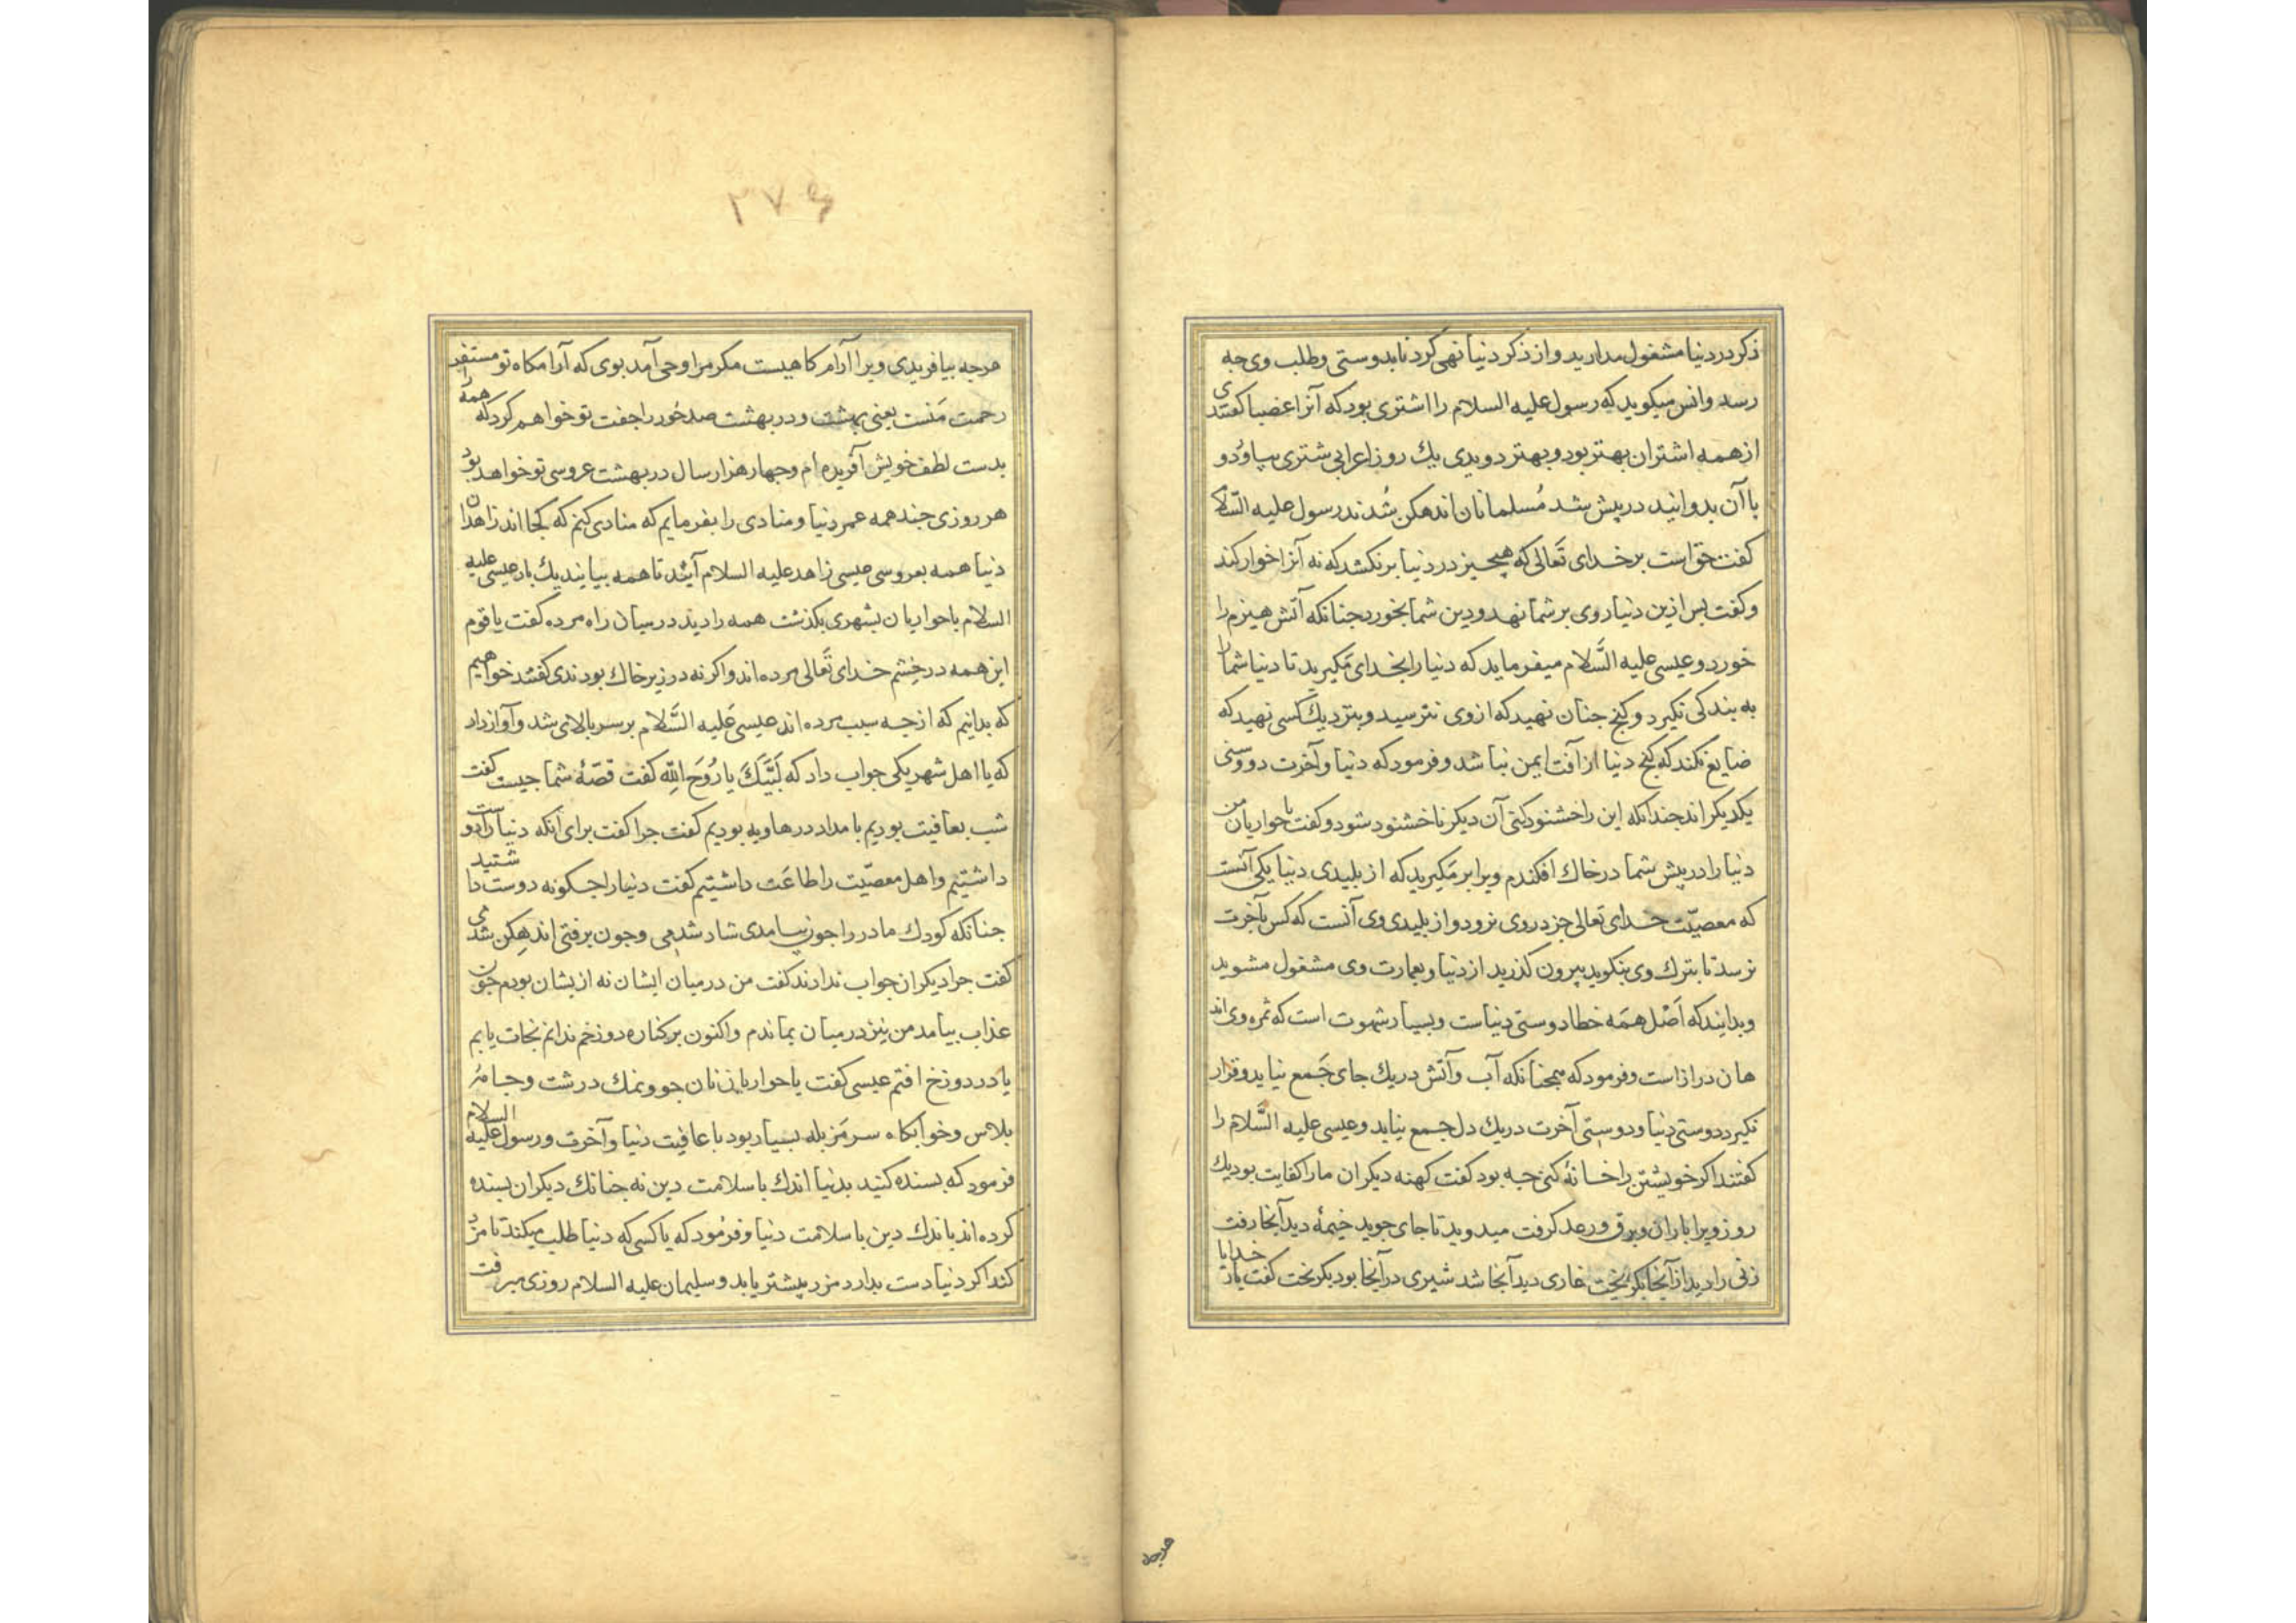 ذکر در دنیا مشغول مدارید و از ذکر دنیا نهی کرد تا بدوستی و طلب وی چه
رسد و انس میکوید که رسول علیه السلام را اشتری بود که آنرا عضبا کفتندی
از همه اشتران بهتر بود و بهتر دویدی یك روز اعرابی شتری بیاورد و
با آن بدوانید در پیش شد مُسلمانان اندهکن شُدند رسول علیه السّلام
کفت حق است بر خدای تَعالی که هیچ چیز در دنیا بر نکشد که نه آنرا خوار کند
و کفت بس ازین دنیا روی بر شما نهد و دین شما بخورد جنانکه آتش هیزم را
خورد و عیسی علیه السَّلام میفرماید که دنیا را بخدای مَکیرید تا دنیا شما را
به بندکی نکیرد و کنج جنان نهید که از وی نترسید و بنزدیك کسی نهید که
ضایع نکند که کنج دنیا از آفت ایمن نباشد و فرمود که دنیا و آخرت دو وسنی
یکدیکراند جندانکه این را خشنود کنی آن دیکر ناخشنود شود و کفت یا حواریان من
دنیا را در پیش شما در خاك افکندم ویرا بر مَکیرید که از بلیدی دنیا یکی آنست
که معصیّت خدای تعالی جز در وی نرود و از بلیدی وی آنست که کس بآخرت
نرسد تا بترك وی بنکوید بیرون کذرید از دنیا و بعمارت وی مشغول مشوید
و بدانید که اَصْل همَه خطا دوستی دنیاست و بسیار شهوت است که ثمره وی اند
هان دراز است و فرمود که همجنانکه آب و آتش در یك جای جَمع نیاید و قرار
نکیرد دوستی دنیا و دوستی آخرت در یك دل جمع نیاید و عیسی علیه السَّلام را
کفتند اکر خویشتن را خانهٔ کنی جه بود کفت کهنه دیکران ما را کفایت بود یك
روز ویرا باران و برق و رعد کرفت میدوید تا جای جوید خیمهٔ دید آنجا رفت
زنی را دید از آنجا بکریخت غاری دید آنجا شد شیری در آنجا بود بکریخت کفت بار خدایا
هرجه
۲۷۶
هرجه بیافریدی ویرا آرام کاهیست مکر مرا وحی آمد بوی که آرامکاه تو مستقر
رحمت مَنست یعنی بهشت و در بهشت صد حُور را جفت تو خواهم کرد که همه را
بدست لطف خویش آفریده ام و جهار هزار سال در بهشت عروسی تو خواهد بود
هر روزی جند همه عمر دنیا و منادی را بفرمایم که منادی کنم که کجا اند زاهدان
دنیا همه بعروسی عیسی زاهد علیه السلام آیند تا همه بیایند یك بار عیسی علیه
السلام با حواریان بشهری بکذشت همه را دید در میان راه مرده کفت یا قوم
این همه در خشم خدای تَعالی مرده اند و اکر نه در زیر خاك بودندی کفتند خواهیم
که بدانیم که از جه سبب مرده اند عیسی عَلیه السَّلام بر سر بالای شد و آواز داد
که یا اهل شهر یکی جواب داد که لَبَّیْكَ یا رُوحَ اللهِ کفت قصّهٔ شما جیست کفت
شب بعافیت بودیم بامداد در هاویه بودیم کفت جرا کفت برای آنکه دنیا را دوست
داشتیم و اهل معصیّت را طاعَت داشتیم کفت دنیا را جکونه دوست داشتید
جنانکه کودك مادر را جون بیامدی شاد شدمی و جون برفتی اندهکن شدمی
کفت جرا دیکران جواب ندادند کفت من در میان ایشان نه از یشان بودم جون
عذاب بیامد من نیز در میان بماندم و اکنون بر کناره دوزخم ندانم نجات یابم
یا در دوزخ افتم عیسی کفت یا حواریان نان جو و نمك درشت و جامهٔ
بلاس و خوابکاه سر مَزبله بسیار بود با عافیت دنیا و آخرت و رسول علیه السلام
فرمود که بسنده کنید بدنیا اندك با سلامت دین نه جنانك دیکران بسنده
کرده اند باندك دین با سلامت دنیا و فرمُود که یا کسی که دنیا طلب میکند تا مزد
کند اکر دنیا دست بدارد مزد بیشتر یابد و سلیمان علیه السلام روزی میرفت